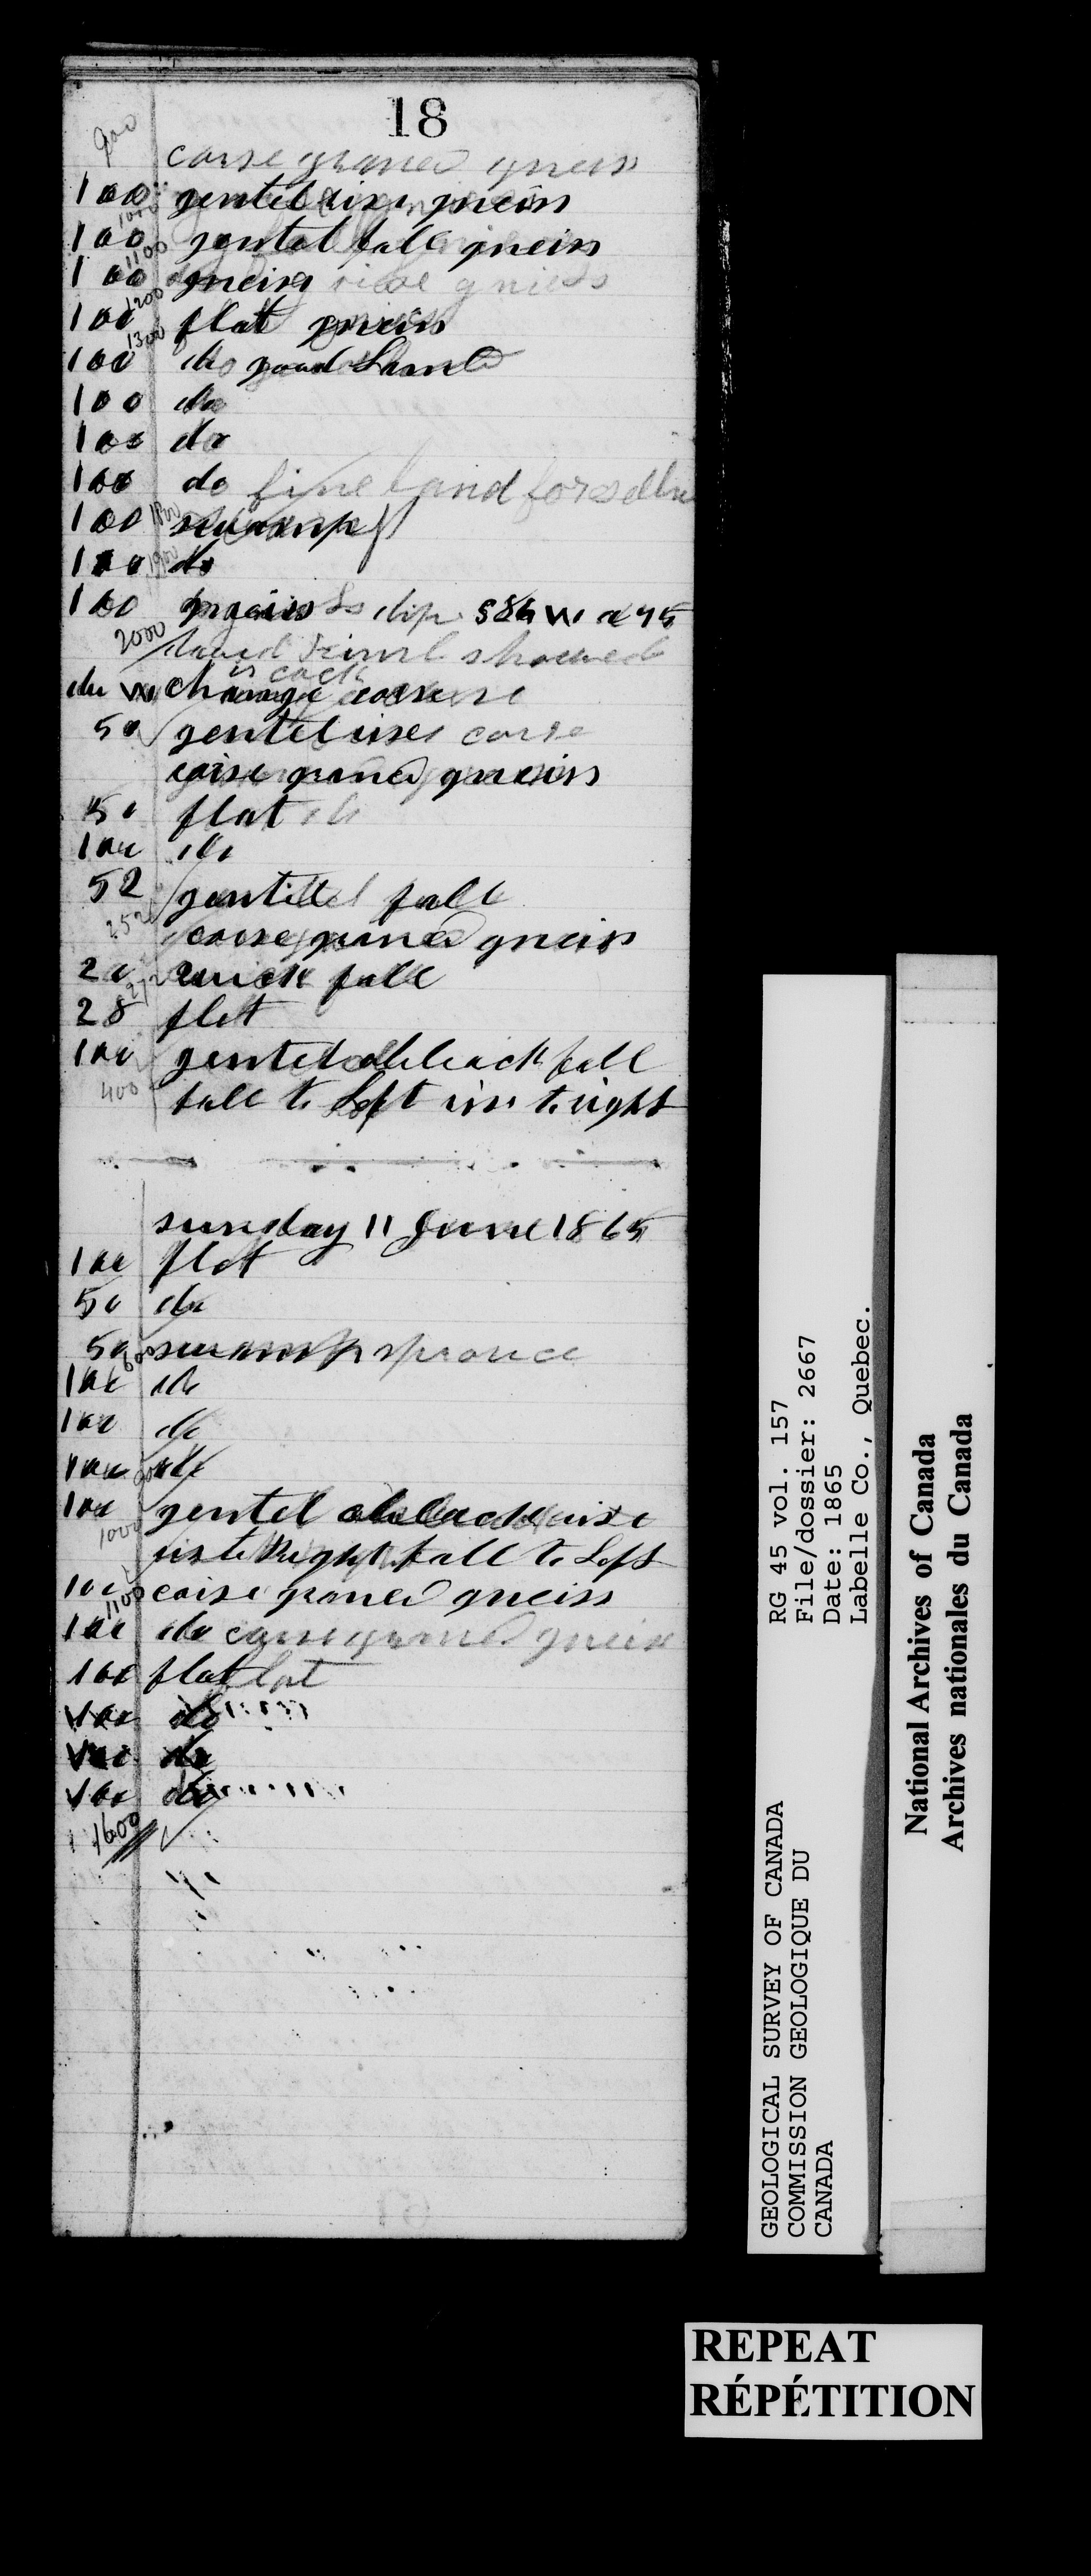 18
900
corse graned gneiss
100 gentel rise gneiss
1000
100 gentel fall gneiss
1100
100 gneiss rise gneiss
1200
100 flat gneiss
1300
100 do good Land
100 do
100 do
100 do fine land for
100 1800 swamp
100 1900 do
100 gneiss dip
2000
change corse
50 gentel rise corse
corse graned gneiss
50 flat do
100 do
52 gentel fall
252 corse graned gneiss
20 quick fall
272
28 flat
100 gentel fall
400 fall to Left rise to right
sunday 11 June 1865
100 flat
50 do
50 swamp sprouce
600
100 do
100 do
100 do
900
100 gentel rise
1000
rise to Right fall to Left
100 corse graned gneiss
1100
100 do corse graned gneiss
100 flat flat
100 do
100 do
100 do
1600
GEOLOGICAL SURVEY OF CANADA
COMMISSION GEOLOGIQUE DU
CANADA
RG 45 vol. 157
File/dossier: 2667
Date: 1865
Labelle Co., Quebec.
National Archives of Canada
Archives nationales du Canada
REPEAT
RÉPÉTITION